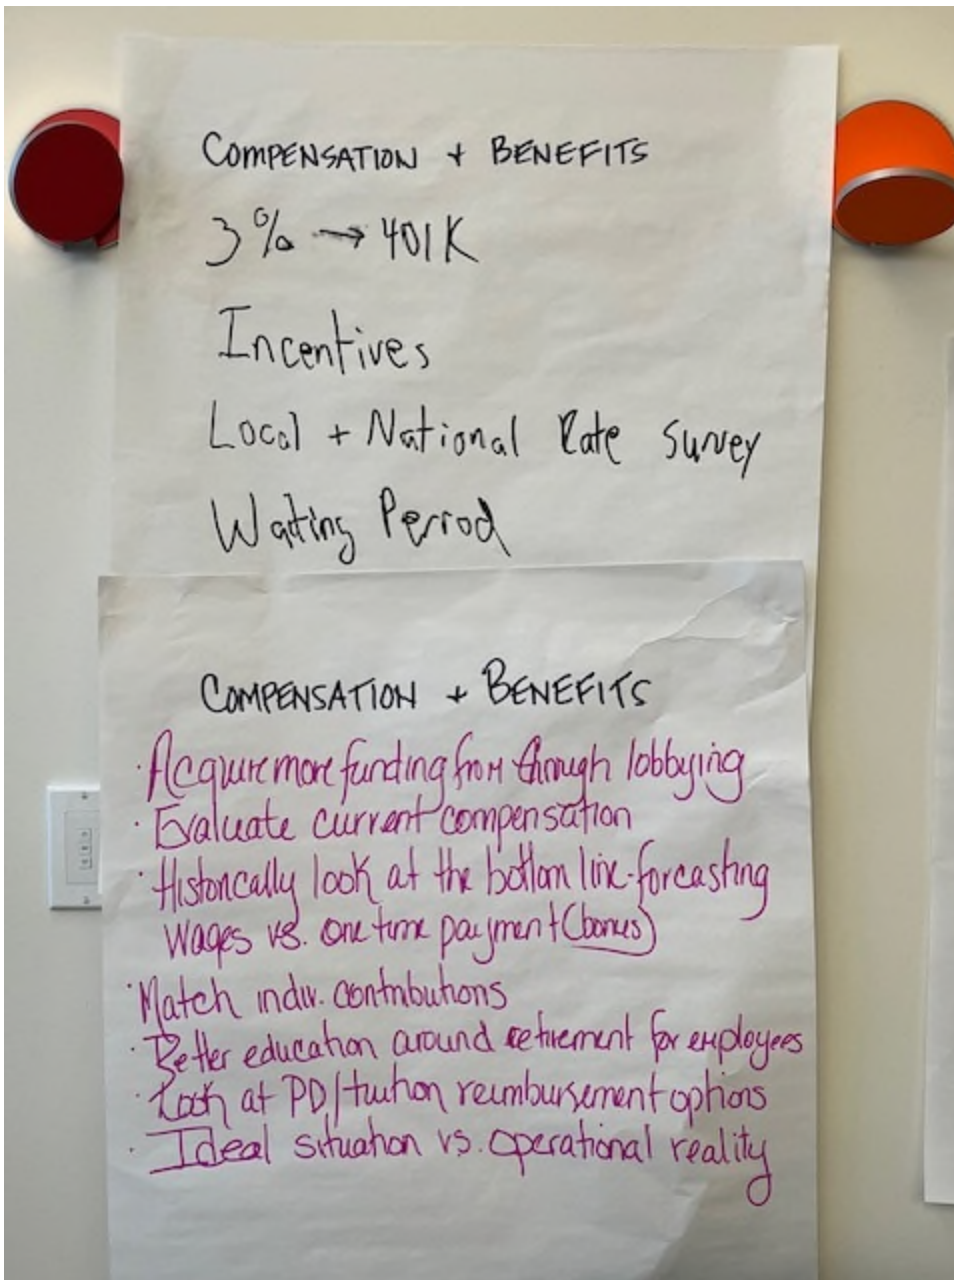 COMPENSATION + BENEFITS
3% → 401K
Incentives
Local + National Rate Survey
Waiting Period
COMPENSATION + BENEFITS
· Acquire more funding from through lobbying
· Evaluate current compensation
· Historically look at the bottom line-forcasting
Wages vs. one time payment (bonus)
· Match indiv. contributions
· Better education around retirement for employees
· Look at PD/tuition reimbursement options
· Ideal situation vs. operational reality